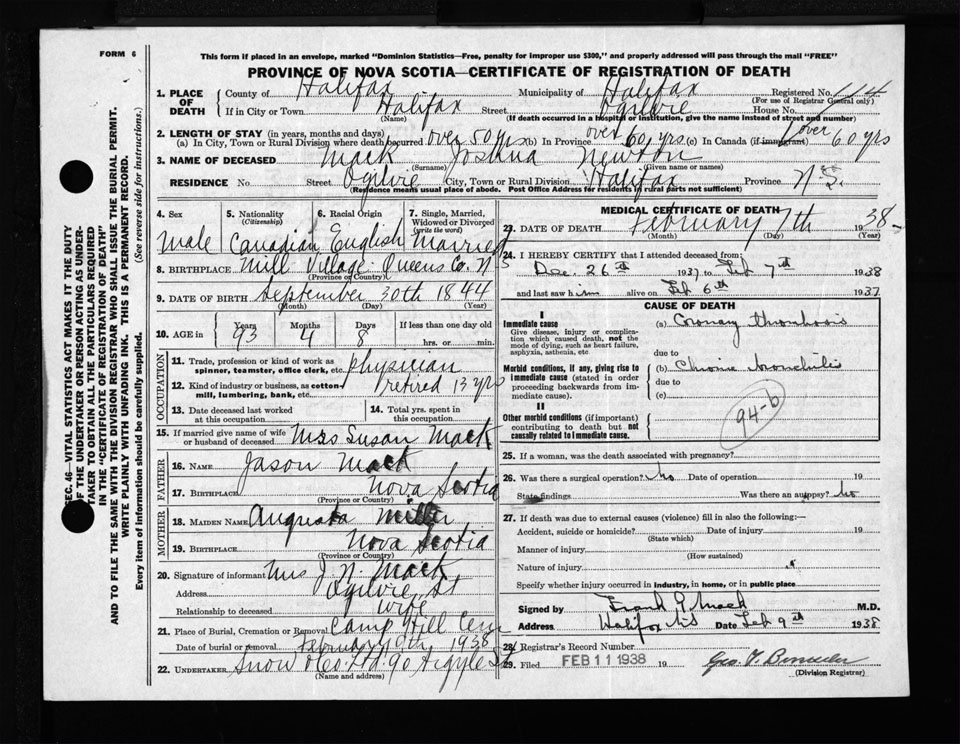 FORM 6
This form if placed in an envelope, marked "Dominion Statistics—Free, penalty for improper use $300," and properly addressed will pass through the mail "FREE"
PROVINCE OF NOVA SCOTIA—CERTIFICATE OF REGISTRATION OF DEATH
SEC. 46—VITAL STATISTICS ACT MAKES IT THE DUTY
OF THE UNDERTAKER OR PERSON ACTING AS UNDER-
TAKER TO OBTAIN ALL THE PARTICULARS REQUIRED
IN THE "CERTIFICATE OF REGISTRATION OF DEATH"
AND TO FILE THE SAME WITH THE DIVISION REGISTRAR WHO SHALL ISSUE THE BURIAL PERMIT.
WRITE PLAINLY WITH UNFADING INK. THIS IS A PERMANENT RECORD.
Every item of information should be carefully supplied. (See reverse side for instructions.)
1. PLACE OF DEATH County of Halifax Municipality of Halifax Registered No. 114
(For use of Registrar General only)
If in City or Town Halifax Street Ogilvie House No.
(Name) (If death occurred in a hospital or institution, give the name instead of street and number)
2. LENGTH OF STAY (in years, months and days)
(a) In City, Town or Rural Division where death occurred over 50 yrs (b) In Province over 60 yrs (c) In Canada (if immigrant) over 60 yrs
3. NAME OF DECEASED Mack Joshua Newton
(Surname) (Given name or names)
RESIDENCE No. Street Ogilvie City, Town or Rural Division Halifax Province N S.
(Residence means usual place of abode. Post Office Address for residents in rural parts not sufficient)
4. Sex 5. Nationality (Citizenship) 6. Racial Origin 7. Single, Married, Widowed or Divorced (write the word)
Male Canadian English Married
8. BIRTHPLACE Mill Village Queens Co. N S
(Province or Country)
9. DATE OF BIRTH September 30th 1844
(Month) (Day) (Year)
10. AGE in Years Months Days If less than one day old
93 4 8 hrs. or min.
OCCUPATION
11. Trade, profession or kind of work as spinner, teamster, office clerk, etc. Physician
12. Kind of industry or business, as cotton mill, lumbering, bank, etc. retired 13 yrs
13. Date deceased last worked at this occupation 14. Total yrs. spent in this occupation
15. If married give name of wife or husband of deceased Mrs Susan Mack
FATHER
16. NAME Jason Mack
17. BIRTHPLACE Nova Scotia
(Province or Country)
MOTHER
18. MAIDEN NAME Augusta Miller
19. BIRTHPLACE Nova Scotia
(Province or Country)
20. Signature of informant Mrs J. N. Mack
Address Ogilvie St
Relationship to deceased wife
21. Place of Burial, Cremation or Removal Camp Hill Cem
Date of burial or removal February 10th 1938
22. UNDERTAKER Snow & Co. Ltd. 90 Argyle St
(Name and address)
MEDICAL CERTIFICATE OF DEATH
23. DATE OF DEATH February 7th 1938
(Month) (Day) (Year)
24. I HEREBY CERTIFY that I attended deceased from:
Dec. 26th 1937 to Feb 7th 1938
and last saw him alive on Feb 6th 1937
CAUSE OF DEATH
I
Immediate cause (a) Coronary thrombosis
Give disease, injury or complication which caused death, not the mode of dying, such as heart failure, asphyxia, asthenia, etc
due to
Morbid conditions, if any, giving rise to immediate cause (stated in order proceeding backwards from immediate cause). (b) Chronic bronchitis
due to
(c)
94-b
II
Other morbid conditions (if important) contributing to death but not causally related to immediate cause.
25. If a woman, was the death associated with pregnancy?
26. Was there a surgical operation? No Date of operation 19
State findings Was there an autopsy? No
27. If death was due to external causes (violence) fill in also the following:—
Accident, suicide or homicide? Date of injury 19
(State which)
Manner of injury
(How sustained)
Nature of injury
Specify whether injury occurred in industry, in home, or in public place
Signed by Frank G. Mack M.D.
Address Halifax NS Date Feb 9th 1938
28. Registrar's Record Number
29. Filed FEB 11 1938
(Division Registrar)